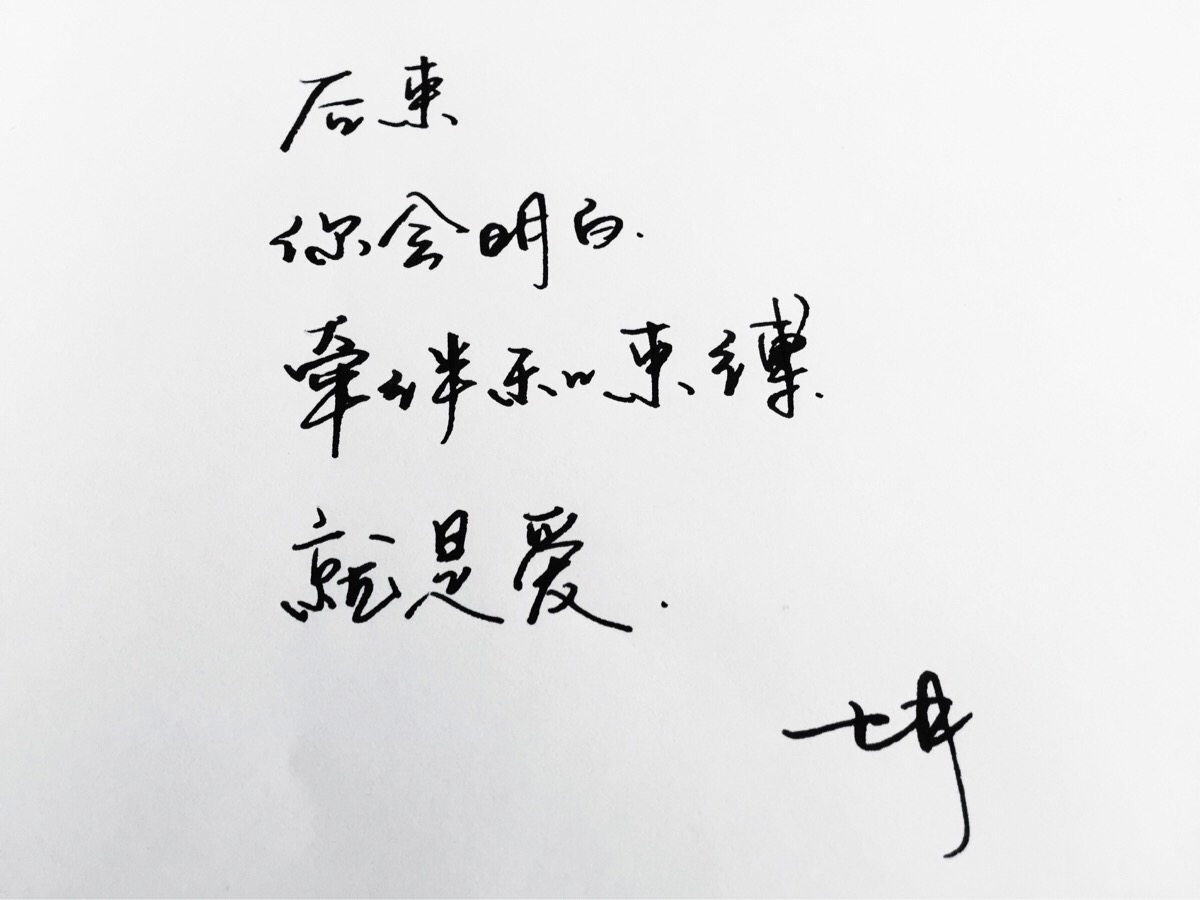 后来
你会明白.
牵绊和束缚.
就是爱.